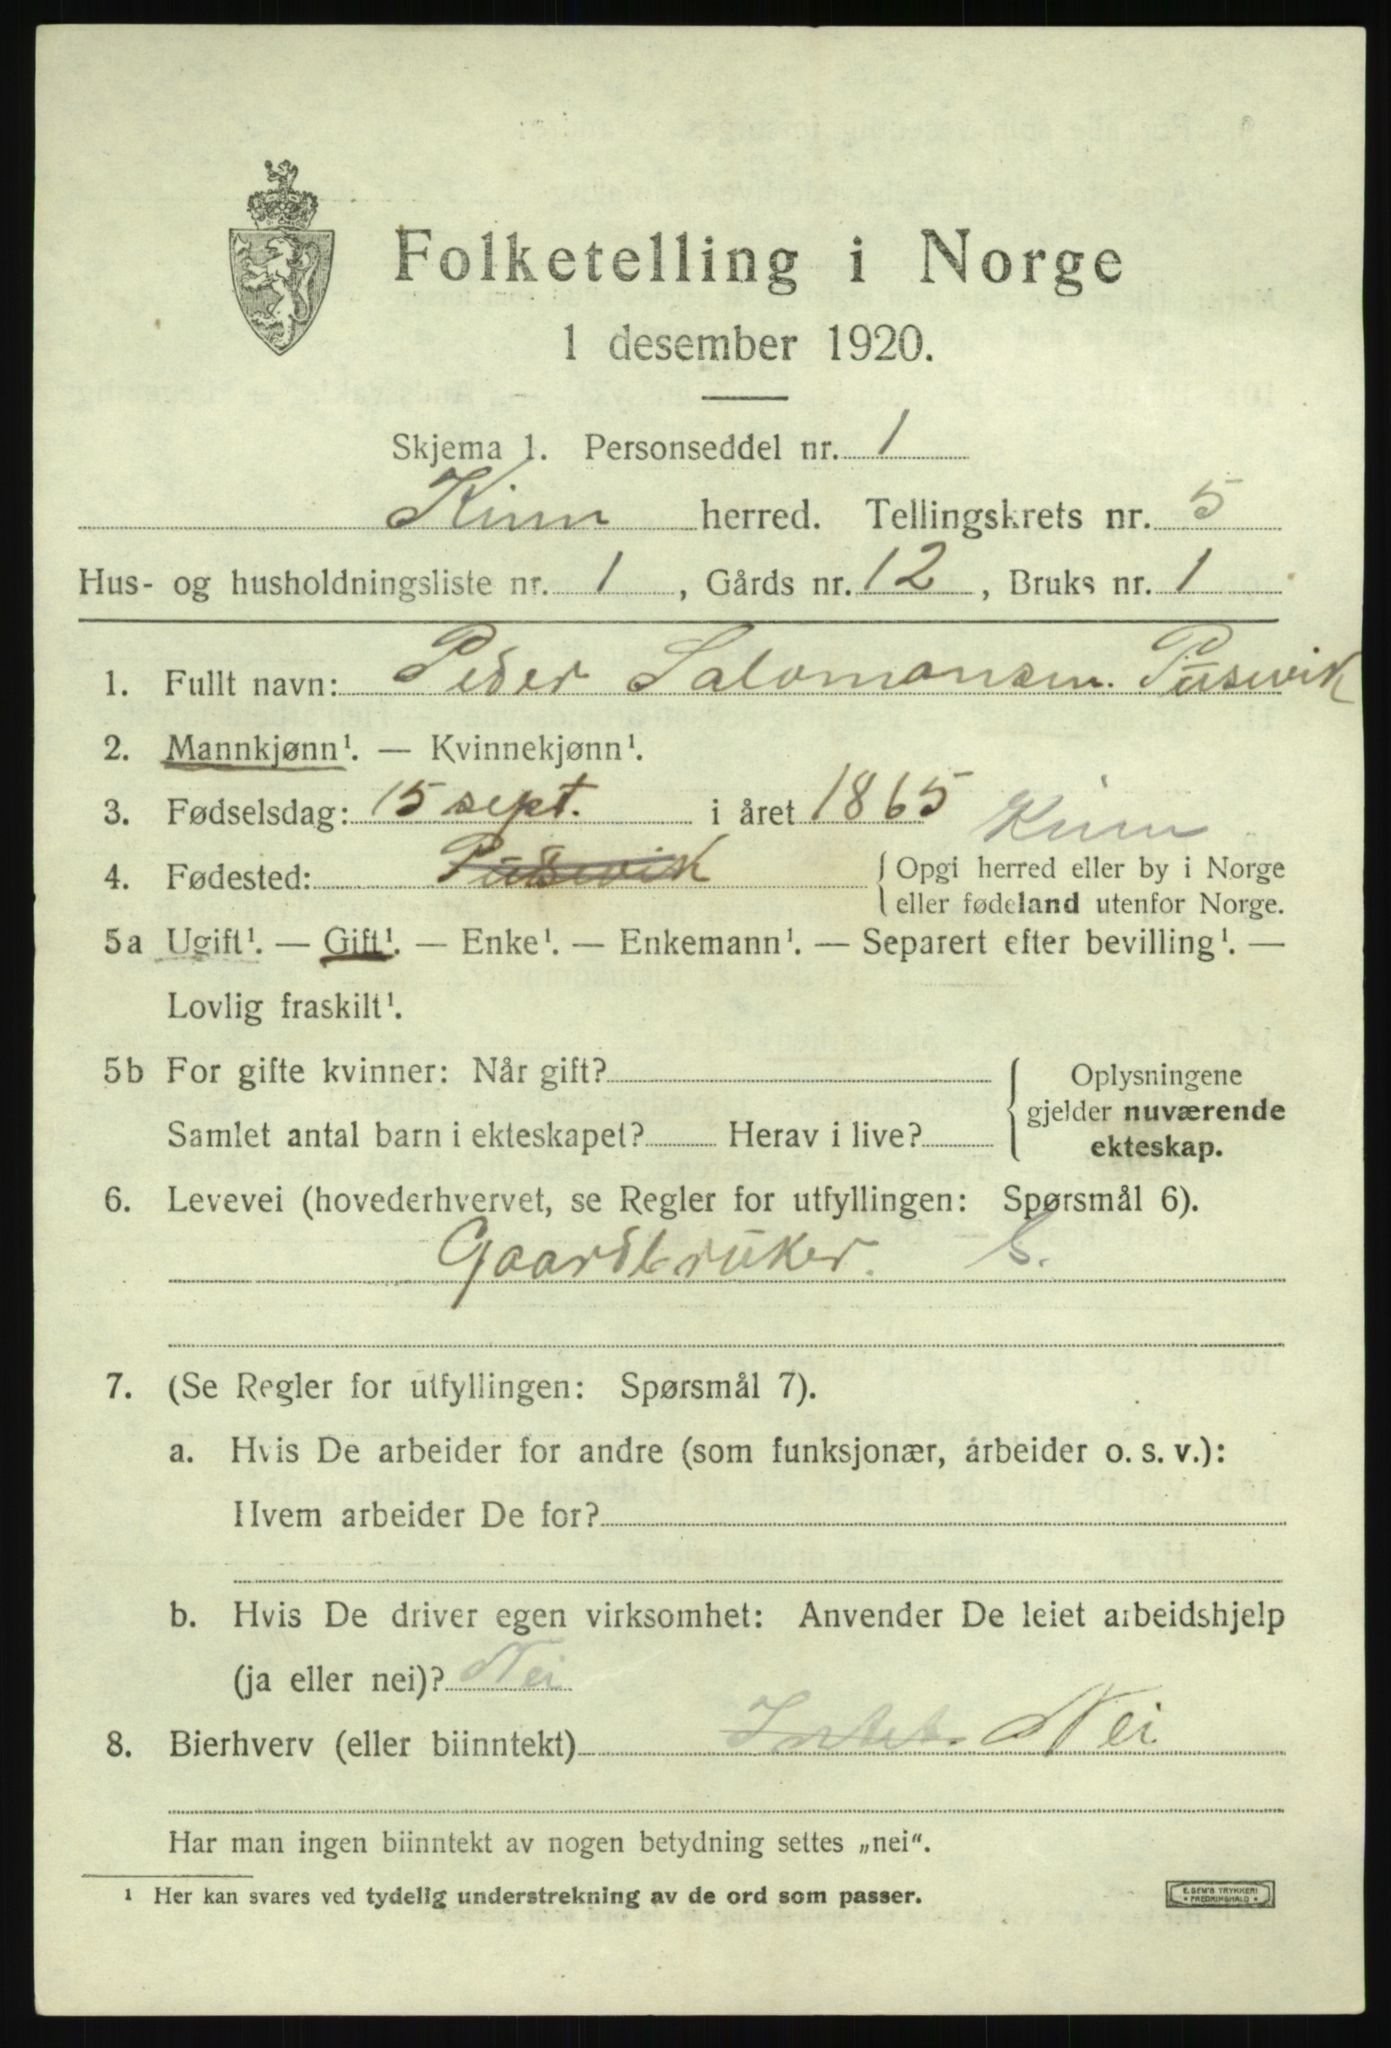 Folketelling i Norge
1 desember 1920.
Skjema 1. Personseddel nr. 1
Kinn herred. Tellingskrets nr. 5
Hus- og husholdningsliste nr. 1, Gårds nr. 12, Bruks nr. 1
1. Fullt navn: Peder Salomonsen. Pusevik
2. Mannkjønn¹. — Kvinnekjønn¹.
3. Fødselsdag: 15 sept. i året 1865 Kinn
4. Fødested: Pusevik { Opgi herred eller by i Norge
eller fødeland utenfor Norge.
5a Ugift¹. — Gift¹. — Enke¹. — Enkemann¹. — Separert efter bevilling¹. —
Lovlig fraskilt¹.
5b For gifte kvinner: Når gift? { Oplysningene
gjelder nuværende
Samlet antal barn i ekteskapet? Herav i live?
ekteskap.
6. Levevei (hovederhvervet, se Regler for utfyllingen: Spørsmål 6).
Gaardbruker. S.
7. (Se Regler for utfyllingen: Spørsmål 7).
a. Hvis De arbeider for andre (som funksjonær, arbeider o. s. v.):
Hvem arbeider De for?
b. Hvis De driver egen virksomhet: Anvender De leiet arbeidshjelp
(ja eller nei)? Nei
8. Bierhverv (eller biinntekt) Intet. Nei
Har man ingen biinntekt av nogen betydning settes „nei“.
¹ Her kan svares ved tydelig understrekning av de ord som passer.
E. SEM'S TRYKKERI
★ FREDRIKSHALD ★